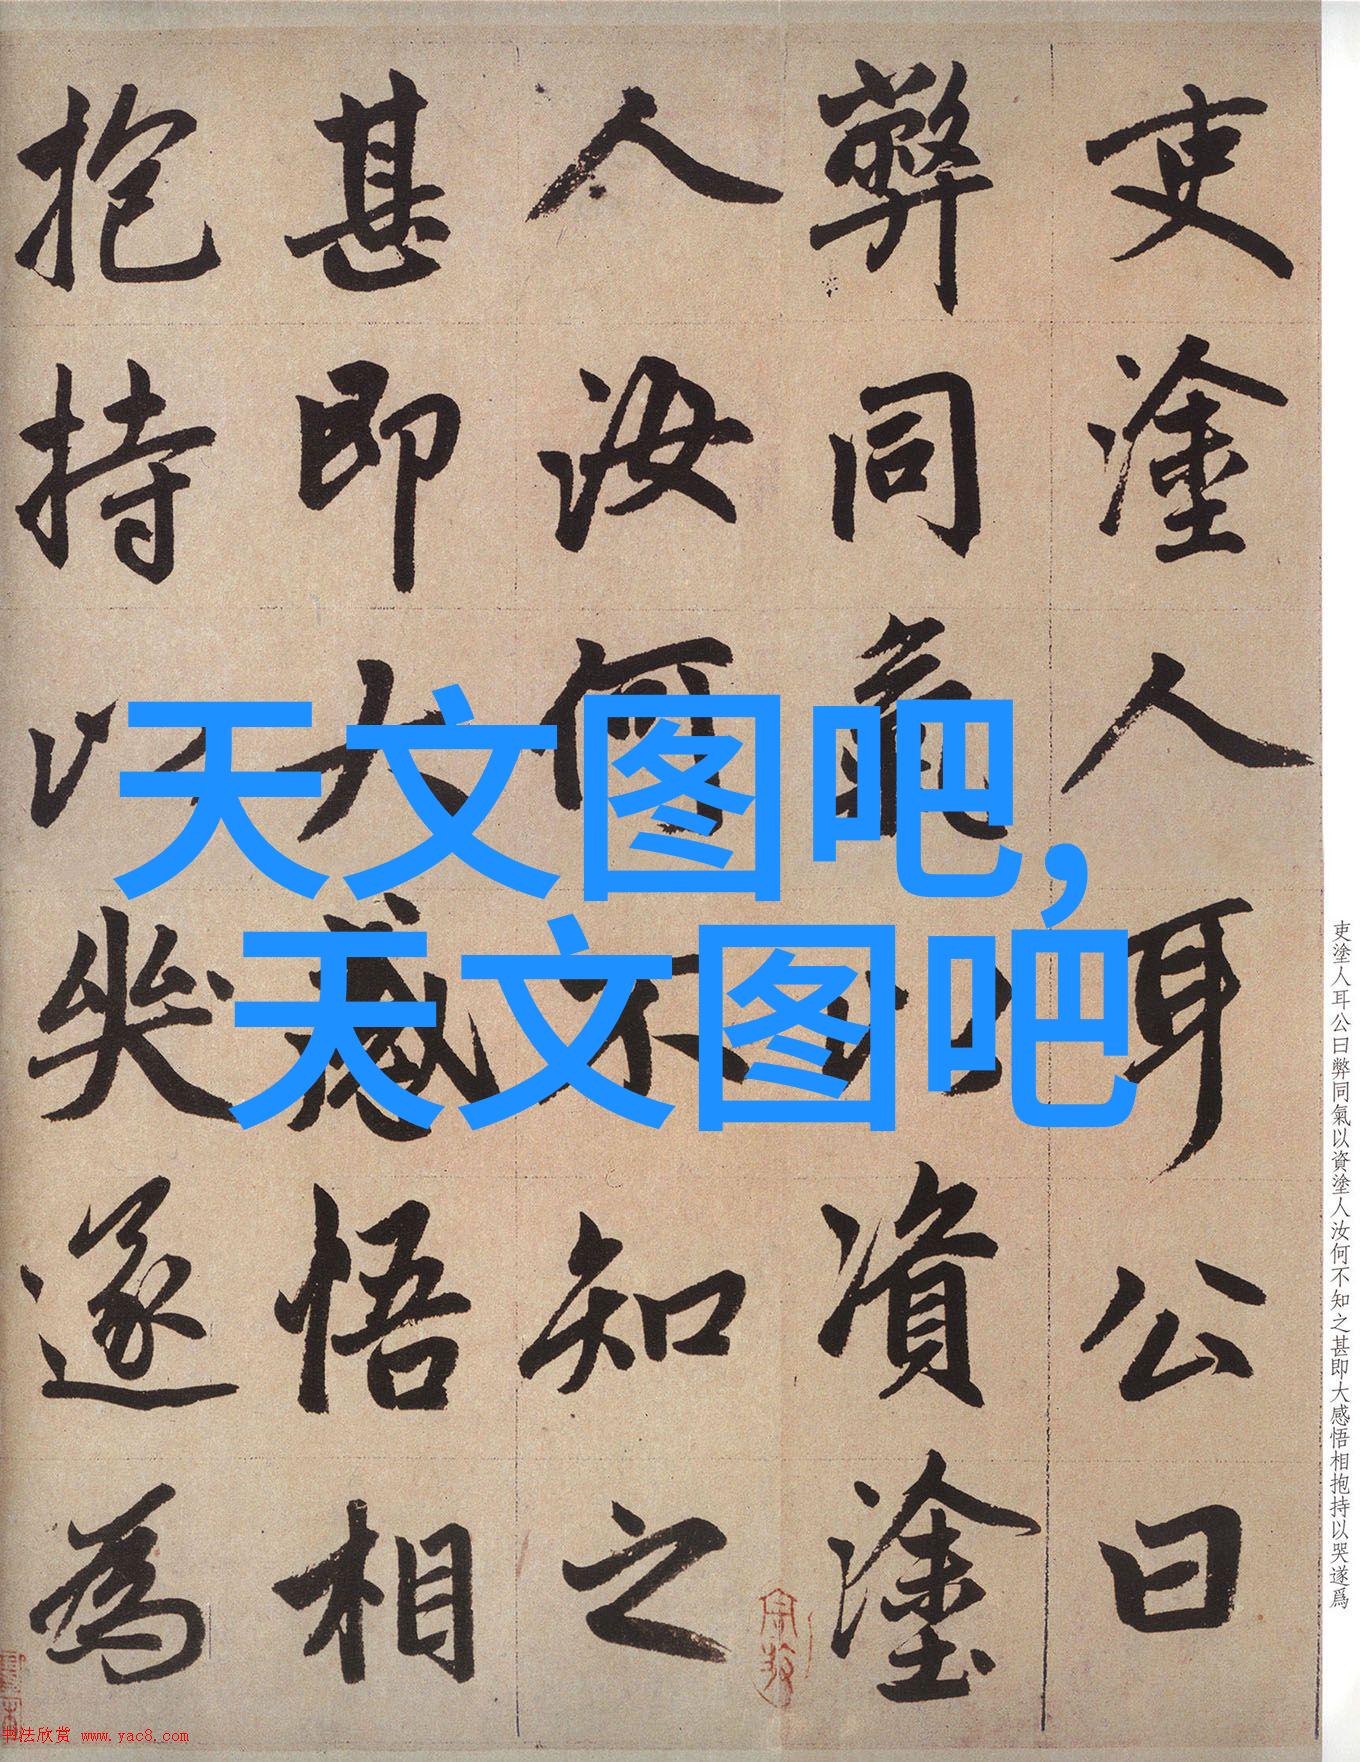 吏塗人耳公曰
弊同氣以資塗
人汝何不知之
甚即大感悟相
抱持以哭遂為
天文图吧,
天文图吧
吏塗人耳公曰弊同氣以資塗人汝何不知之甚即大感悟相抱持以哭遂爲
书法欣赏 www.yac8.com